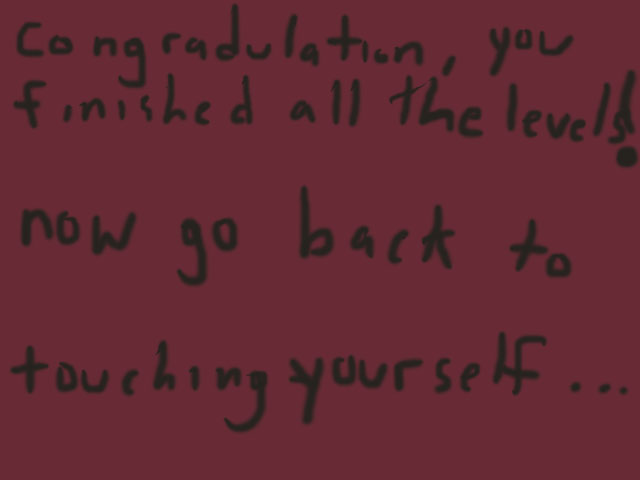 Congradulation, you
finished all the levels!
now go back to
touching yourself...